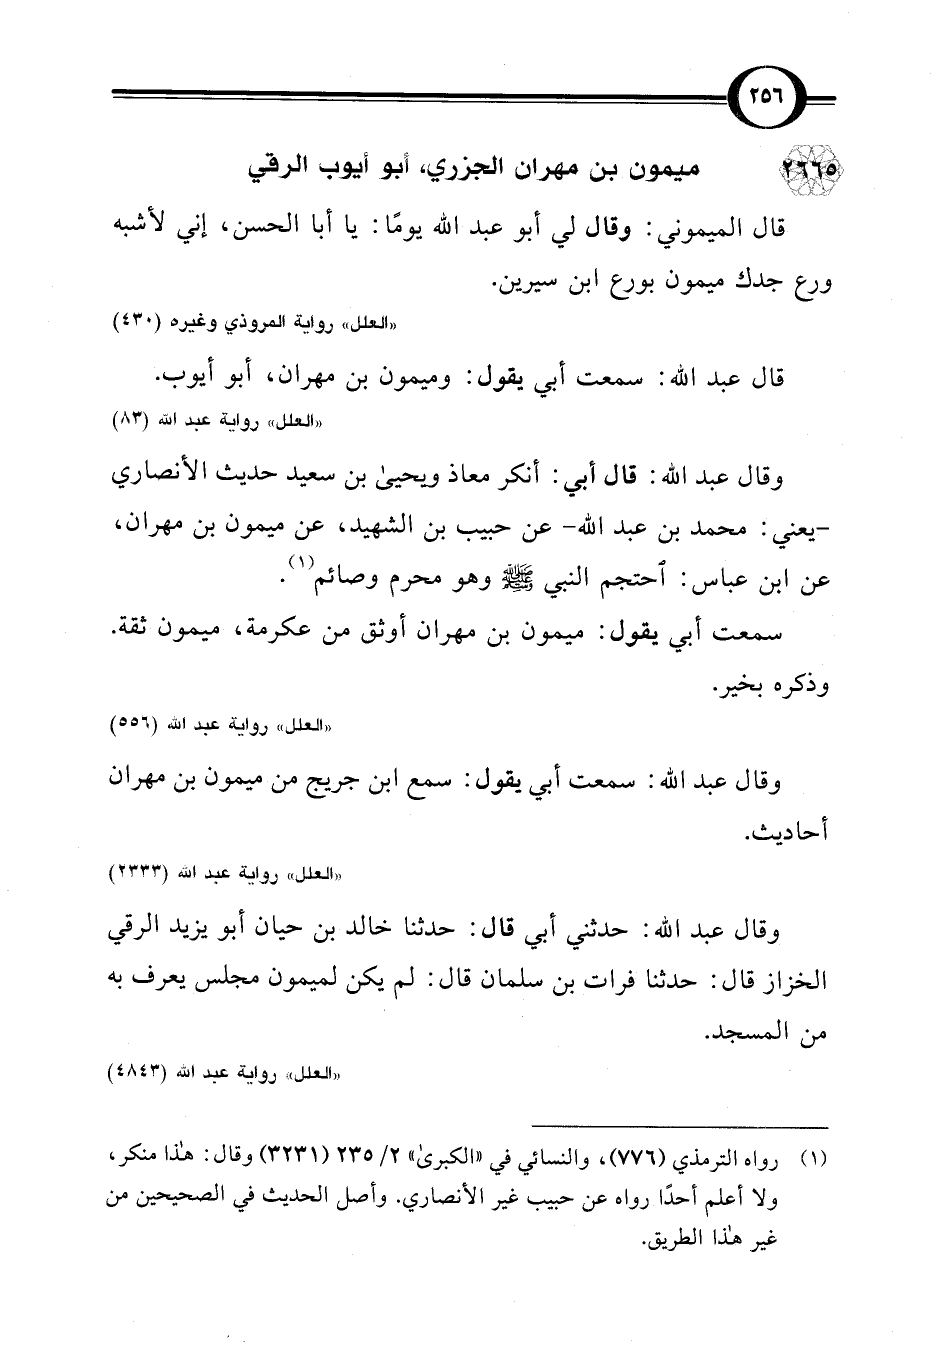 ٢٥٦
٢٦٦٥ ميمون بن مهران الجزري، أبو أيوب الرقي
قال الميموني: وقال لي أبو عبد الله يومًا: يا أبا الحسن، إني لأشبه
ورع جدك ميمون بورع ابن سيرين.
«العلل» رواية المروذي وغيره (٤٣٠)
قال عبد الله: سمعت أبي يقول: وميمون بن مهران، أبو أيوب.
«العلل» رواية عبد الله (٨٣)
وقال عبد الله: قال أبي: أنكر معاذ ويحيىٰ بن سعيد حديث الأنصاري
-يعني: محمد بن عبد الله- عن حبيب بن الشهيد، عن ميمون بن مهران،
عن ابن عباس: ٱحتجم النبي ﷺ وهو محرم وصائم(١).
سمعت أبي يقول: ميمون بن مهران أوثق من عكرمة، ميمون ثقة.
وذكره بخير.
«العلل» رواية عبد الله (٥٥٦)
وقال عبد الله: سمعت أبي يقول: سمع ابن جريج من ميمون بن مهران
أحاديث.
«العلل» رواية عبد الله (٢٣٣٣)
وقال عبد الله: حدثني أبي قال: حدثنا خالد بن حيان أبو يزيد الرقي
الخزاز قال: حدثنا فرات بن سلمان قال: لم يكن لميمون مجلس يعرف به
من المسجد.
«العلل» رواية عبد الله (٤٨٤٣)
(١) رواه الترمذي (٧٧٦)، والنسائي في «الكبرىٰ» ٢/ ٢٣٥ (٣٢٣١) وقال: هٰذا منكر،
ولا أعلم أحدًا رواه عن حبيب غير الأنصاري. وأصل الحديث في الصحيحين من
غير هٰذا الطريق.